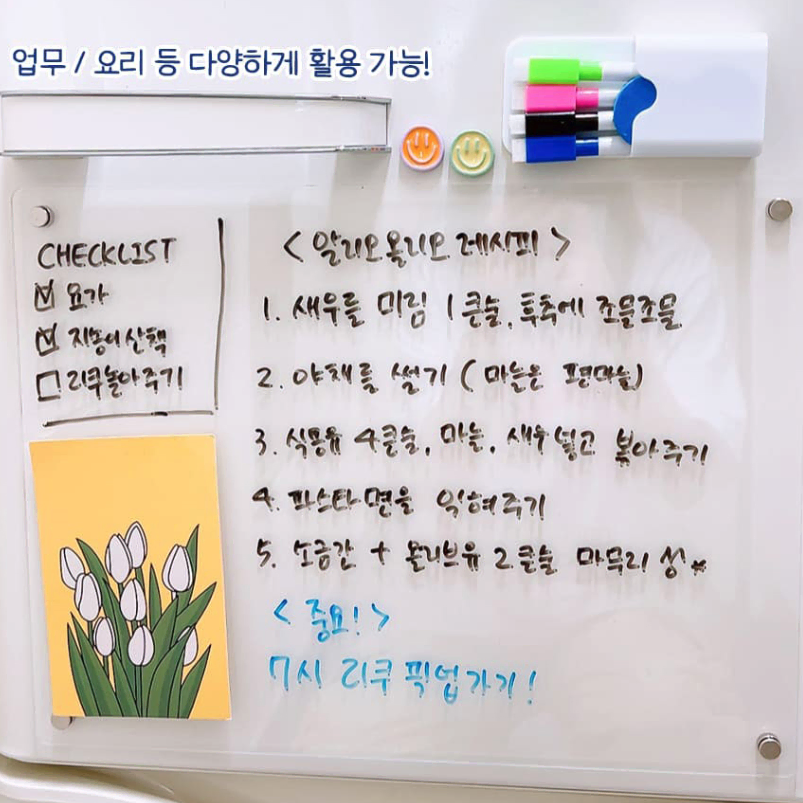 업무 / 요리 등 다양하게 활용 가능!
CHECKLIST
요가
지농이산책
리쿠놀아주기
<알리오올리오 레시피>
1. 새우를 미림 1큰술, 후추에 조물조물
2. 야채를 썰기 (마늘은 편마늘)
3. 식용유 4큰술, 마늘, 새우 넣고 볶아주기
4. 파스타면을 익혀주기
5. 소금간 + 올리브유 2큰술 마무리
<중요!>
7시 리쿠 픽업가기!